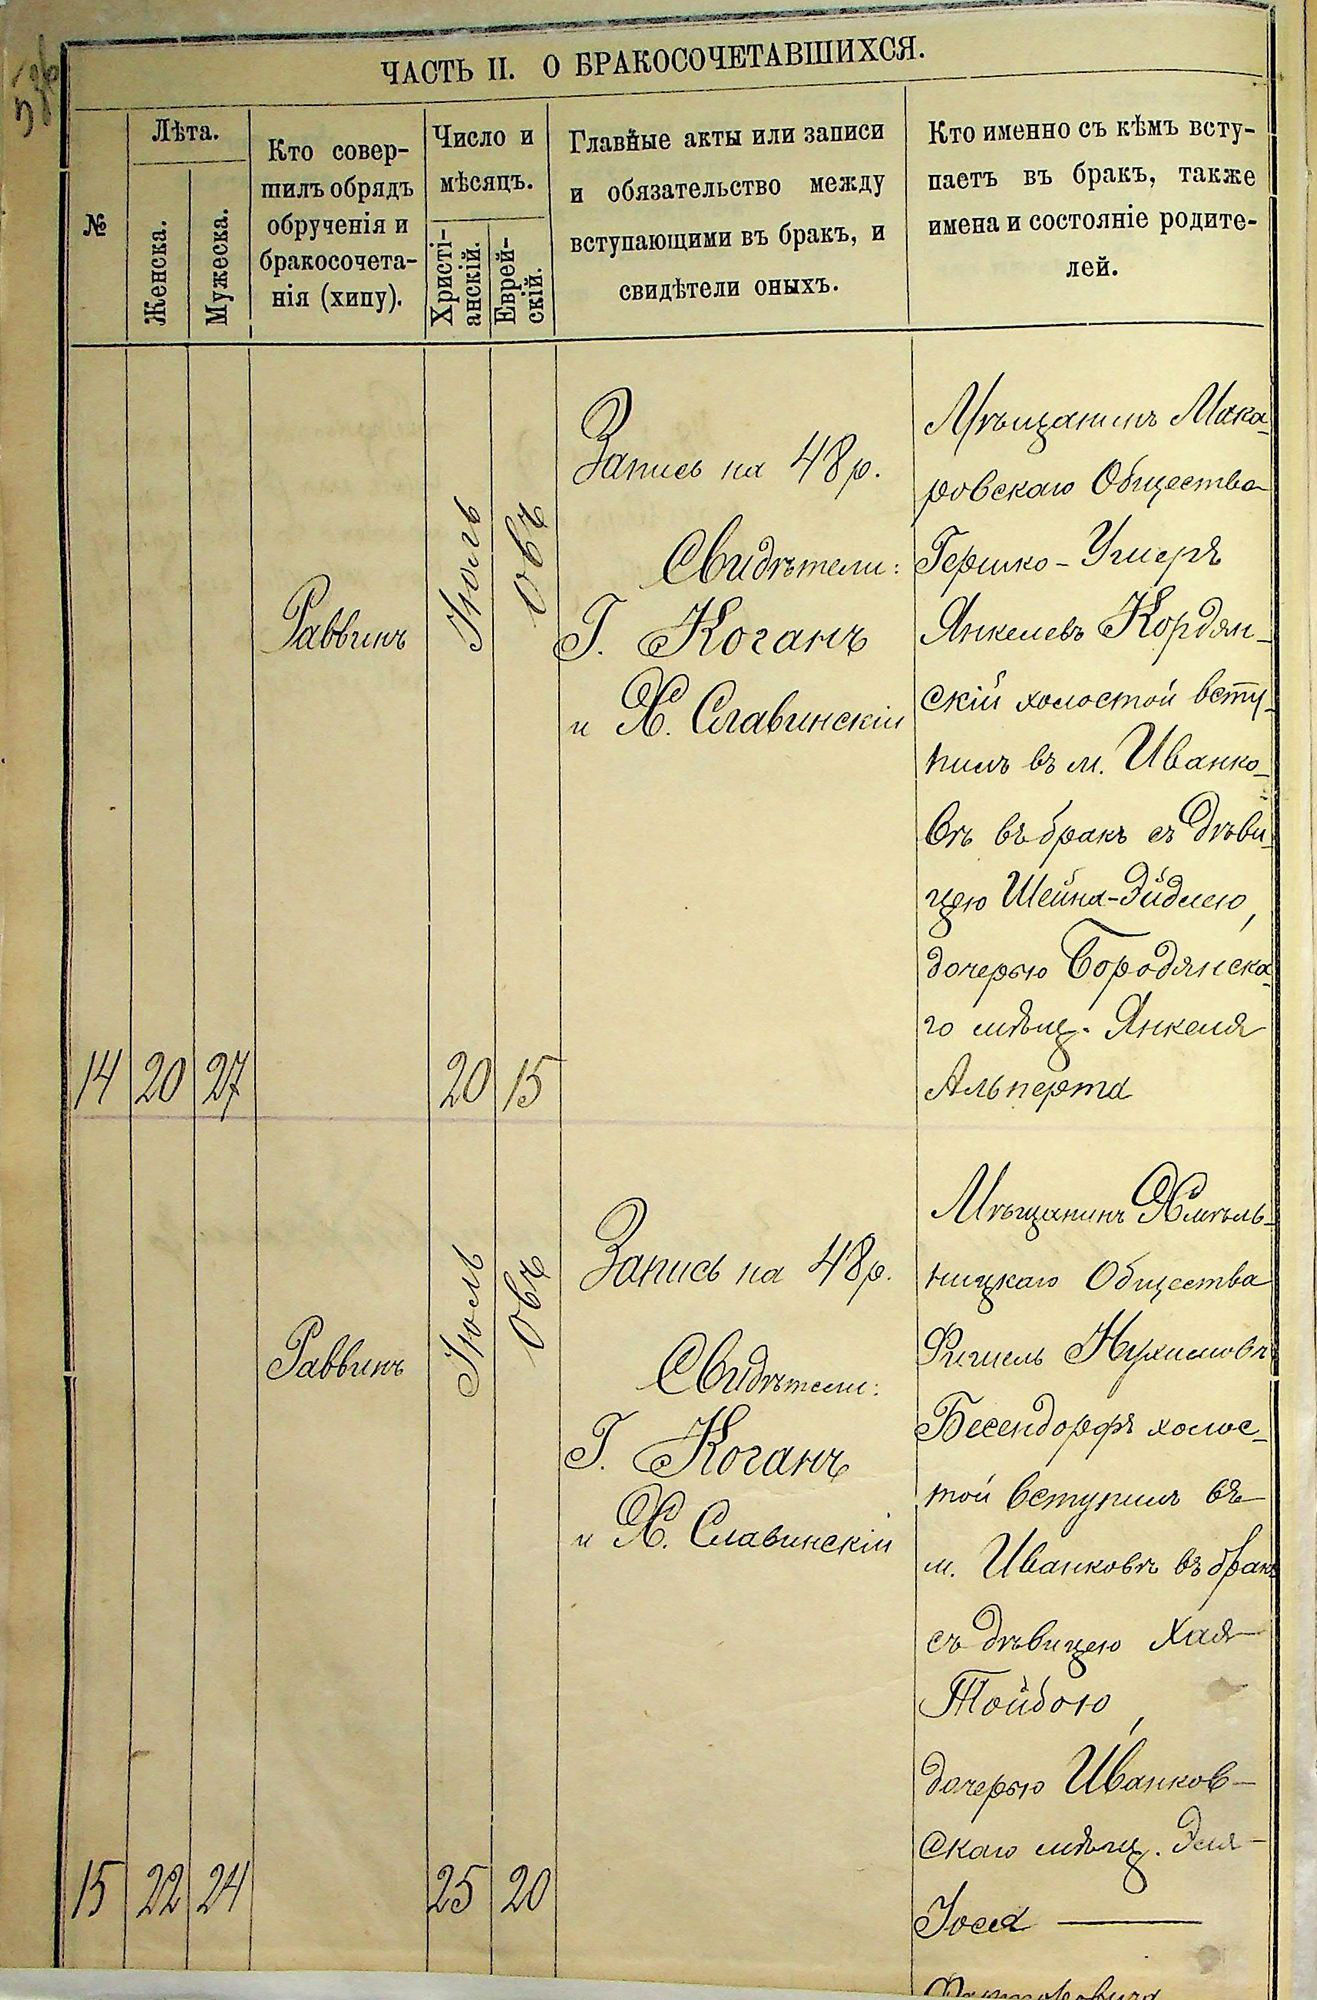 ЧАСТЬ II. О БРАКОСОЧЕТАВШИХСЯ.
№
Лѣта.
Женска.
Мужеска.
Кто совер-
шилъ обрядъ
обрученія и
бракосочета-
нія (хипу).
Число и
мѣсяцъ.
Христі-
анскій.
Еврей-
скій.
Главные акты или записи
и обязательство между
вступающими въ бракъ, и
свидѣтели оныхъ.
Кто именно съ кѣмъ всту-
паетъ въ бракъ, также
имена и состояніе родите-
лей.
14
20
27
Раввинъ
Іюль
20
Овъ
15
Запись на 48 р.
Свидѣтели:
Г. Коганъ
и Х. Славинскій
Мѣщанинъ Мака-
ровскаго Общества
Гершко-Умеръ
Янкелевъ Кордян-
скій холостой всту-
пилъ въ м. Иванко-
вѣ въ бракъ съ дѣви-
цею Шейна-Эйдлею,
дочерью Бородянска-
го мѣщ. Янкеля
Альперта
15
22
24
Раввинъ
Іюль
25
Овъ
20
Запись на 48 р.
Свидѣтели:
Г. Коганъ
и Х. Славинскій
Мѣщанинъ Хмѣль-
ницкаго Общества
Фишель Нухимовъ
Бесендорфъ холос-
той вступилъ въ
м. Иванковѣ въ бракъ
съ дѣвицею Хая-
Тойбою,
дочерью Иванков-
скаго мѣщ. Эля-
Іося